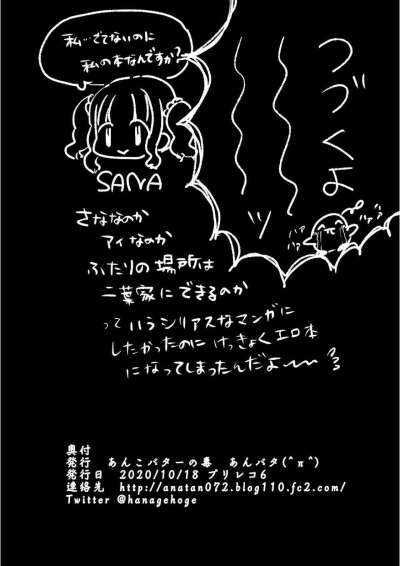 私…でてないのに
私の本なんですか?
SANA
つづくよ
ッ
ハァ
ハァ
π
さななのか
アイなのか
ふたりの場所は
二葉家にできるのか
っていうシリアスなマンガに
したかったのに けっきょくエロ本
になってしまったんだよ〜〜
奥付
発行 あんこバターの毒 あんバタ(^π^)
発行日 2020/10/18 プリレコ6
連絡先 http://anatan072.blog110.fc2.com/
Twitter @hanagehoge